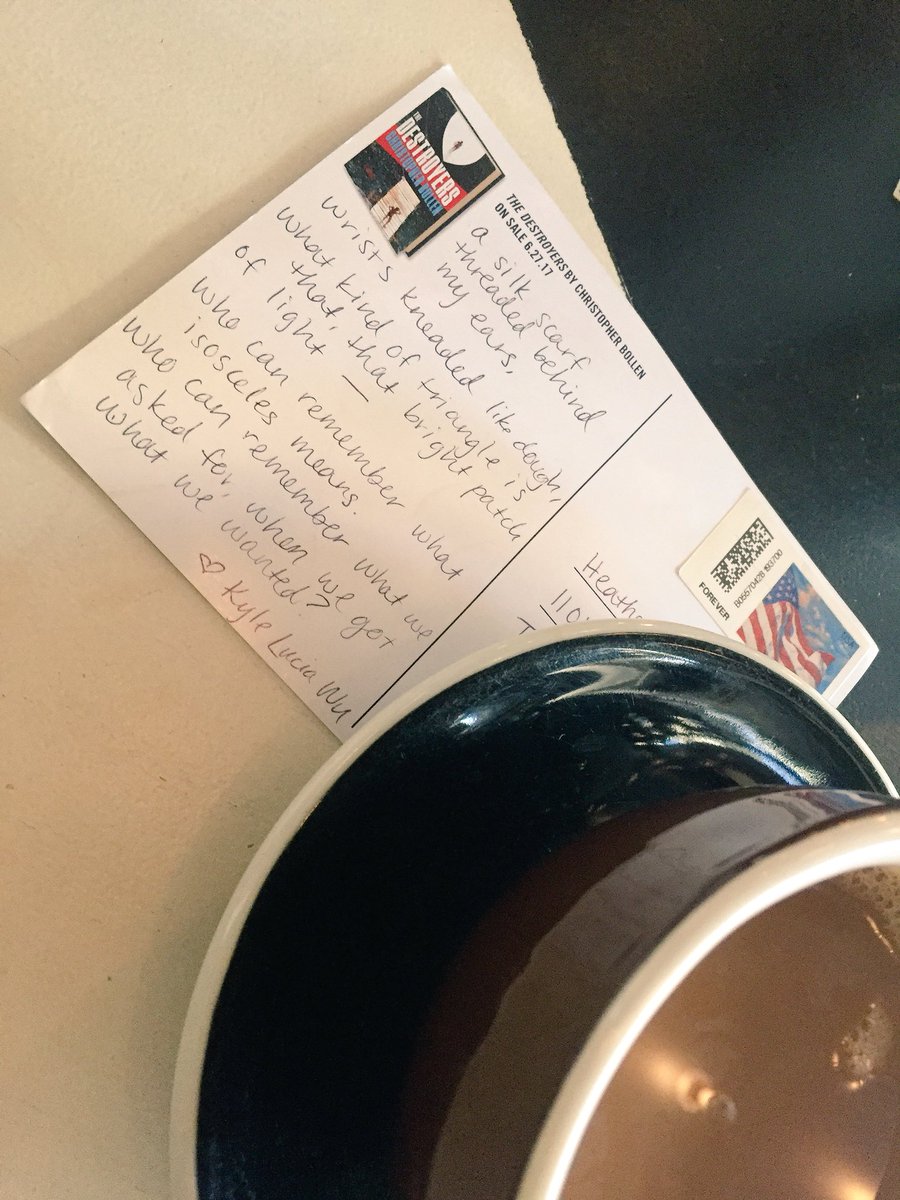 THE
DESTROYERS
CHRISTOPHER BOLLEN
THE DESTROYERS BY CHRISTOPHER BOLLEN
ON SALE 6.27.17
a silk scarf
threaded behind
my ears,
wrists kneaded like dough,
what kind of triangle is
that, that bright patch
of light —
who can remember what
isosceles means.
who can remember what we
asked for, when we get
what we wanted?
♡ Kyle Lucia Wu
FOREVER
Heathe
110
T